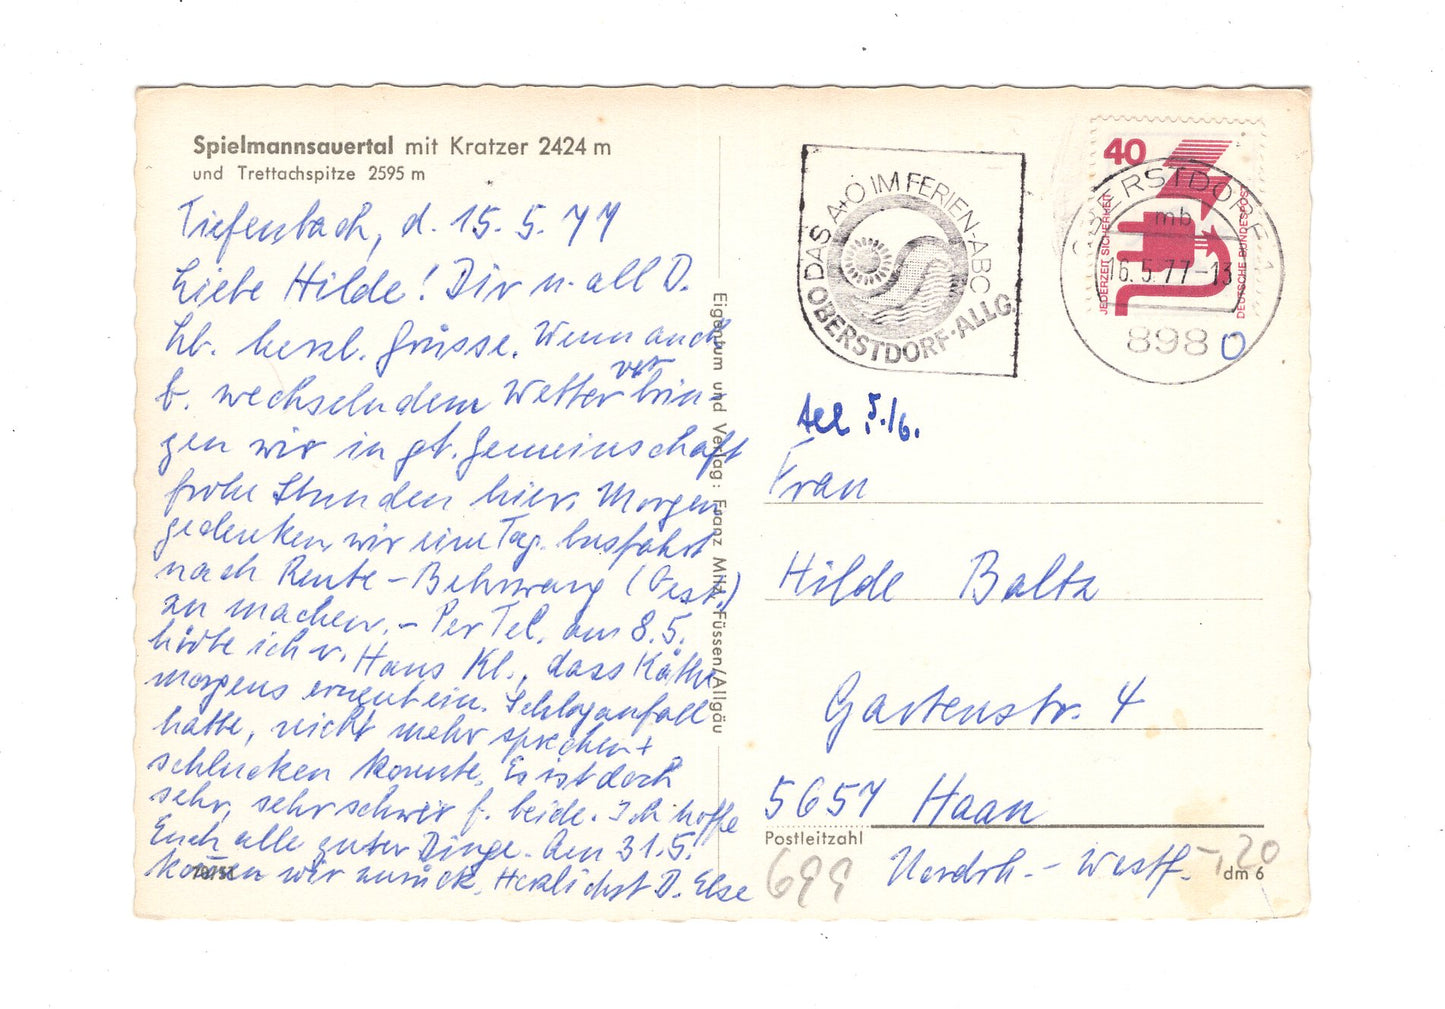 Spielmannsauertal mit Kratzer 2424 m
und Trettachspitze 2595 m
Tiefenbach, d. 15.5.77
Liebe Hilde! Dir u. all D.
Lb. herzl. Grüsse. Wenn auch
b. wechselndem Wetter verbrin-
gen wir in gt. Gemeinschaft
frohe Stunden hier. Morgen
gedenken wir eine Tag. busfahrt
nach Reute - Behrwang (Oest.)
zu machen. - Per Tel. am 8.5.
hörte ich v. Hans Kl., dass Käthe
morgens erneut ein. Schlaganfall
hatte, nicht mehr sprechen +
schlucken konnte. Es ist doch
sehr, sehr schwer f. beide. Ich hoffe
Euch alle guter Dinge. Am 31.5.
kommen wir zurück. Herzlichst D. Else
Eigentum und Verlag: Franz Milz, Füssen/Allgäu
DAS A+O IM FERIEN-ABC
OBERSTDORF-ALLG.
40
JEDERZEIT SICHERHEIT
DEUTSCHE BUNDESPOST
OBERSTDORF 1
mb
16.5.77-13
8980
5./6.
Frau
Hilde Baltz
Gartenstr. 4
5657 Haan
Postleitzahl
Nordrh.-Westf.
699
-,20
dm 6